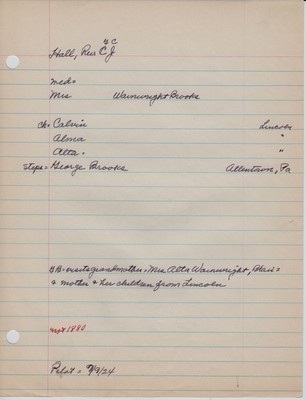 & C
Hall, Rev C J
Mrs Wainwright Brooks
ch: Calvin Lincoln
Alma "
Alta "
steps: George Brooks Allentown, Pa
GB visits grandmother, Mrs Alta Wainwright, Blair
& mother & her children from Lincoln
1880
Pilot 7/9/24